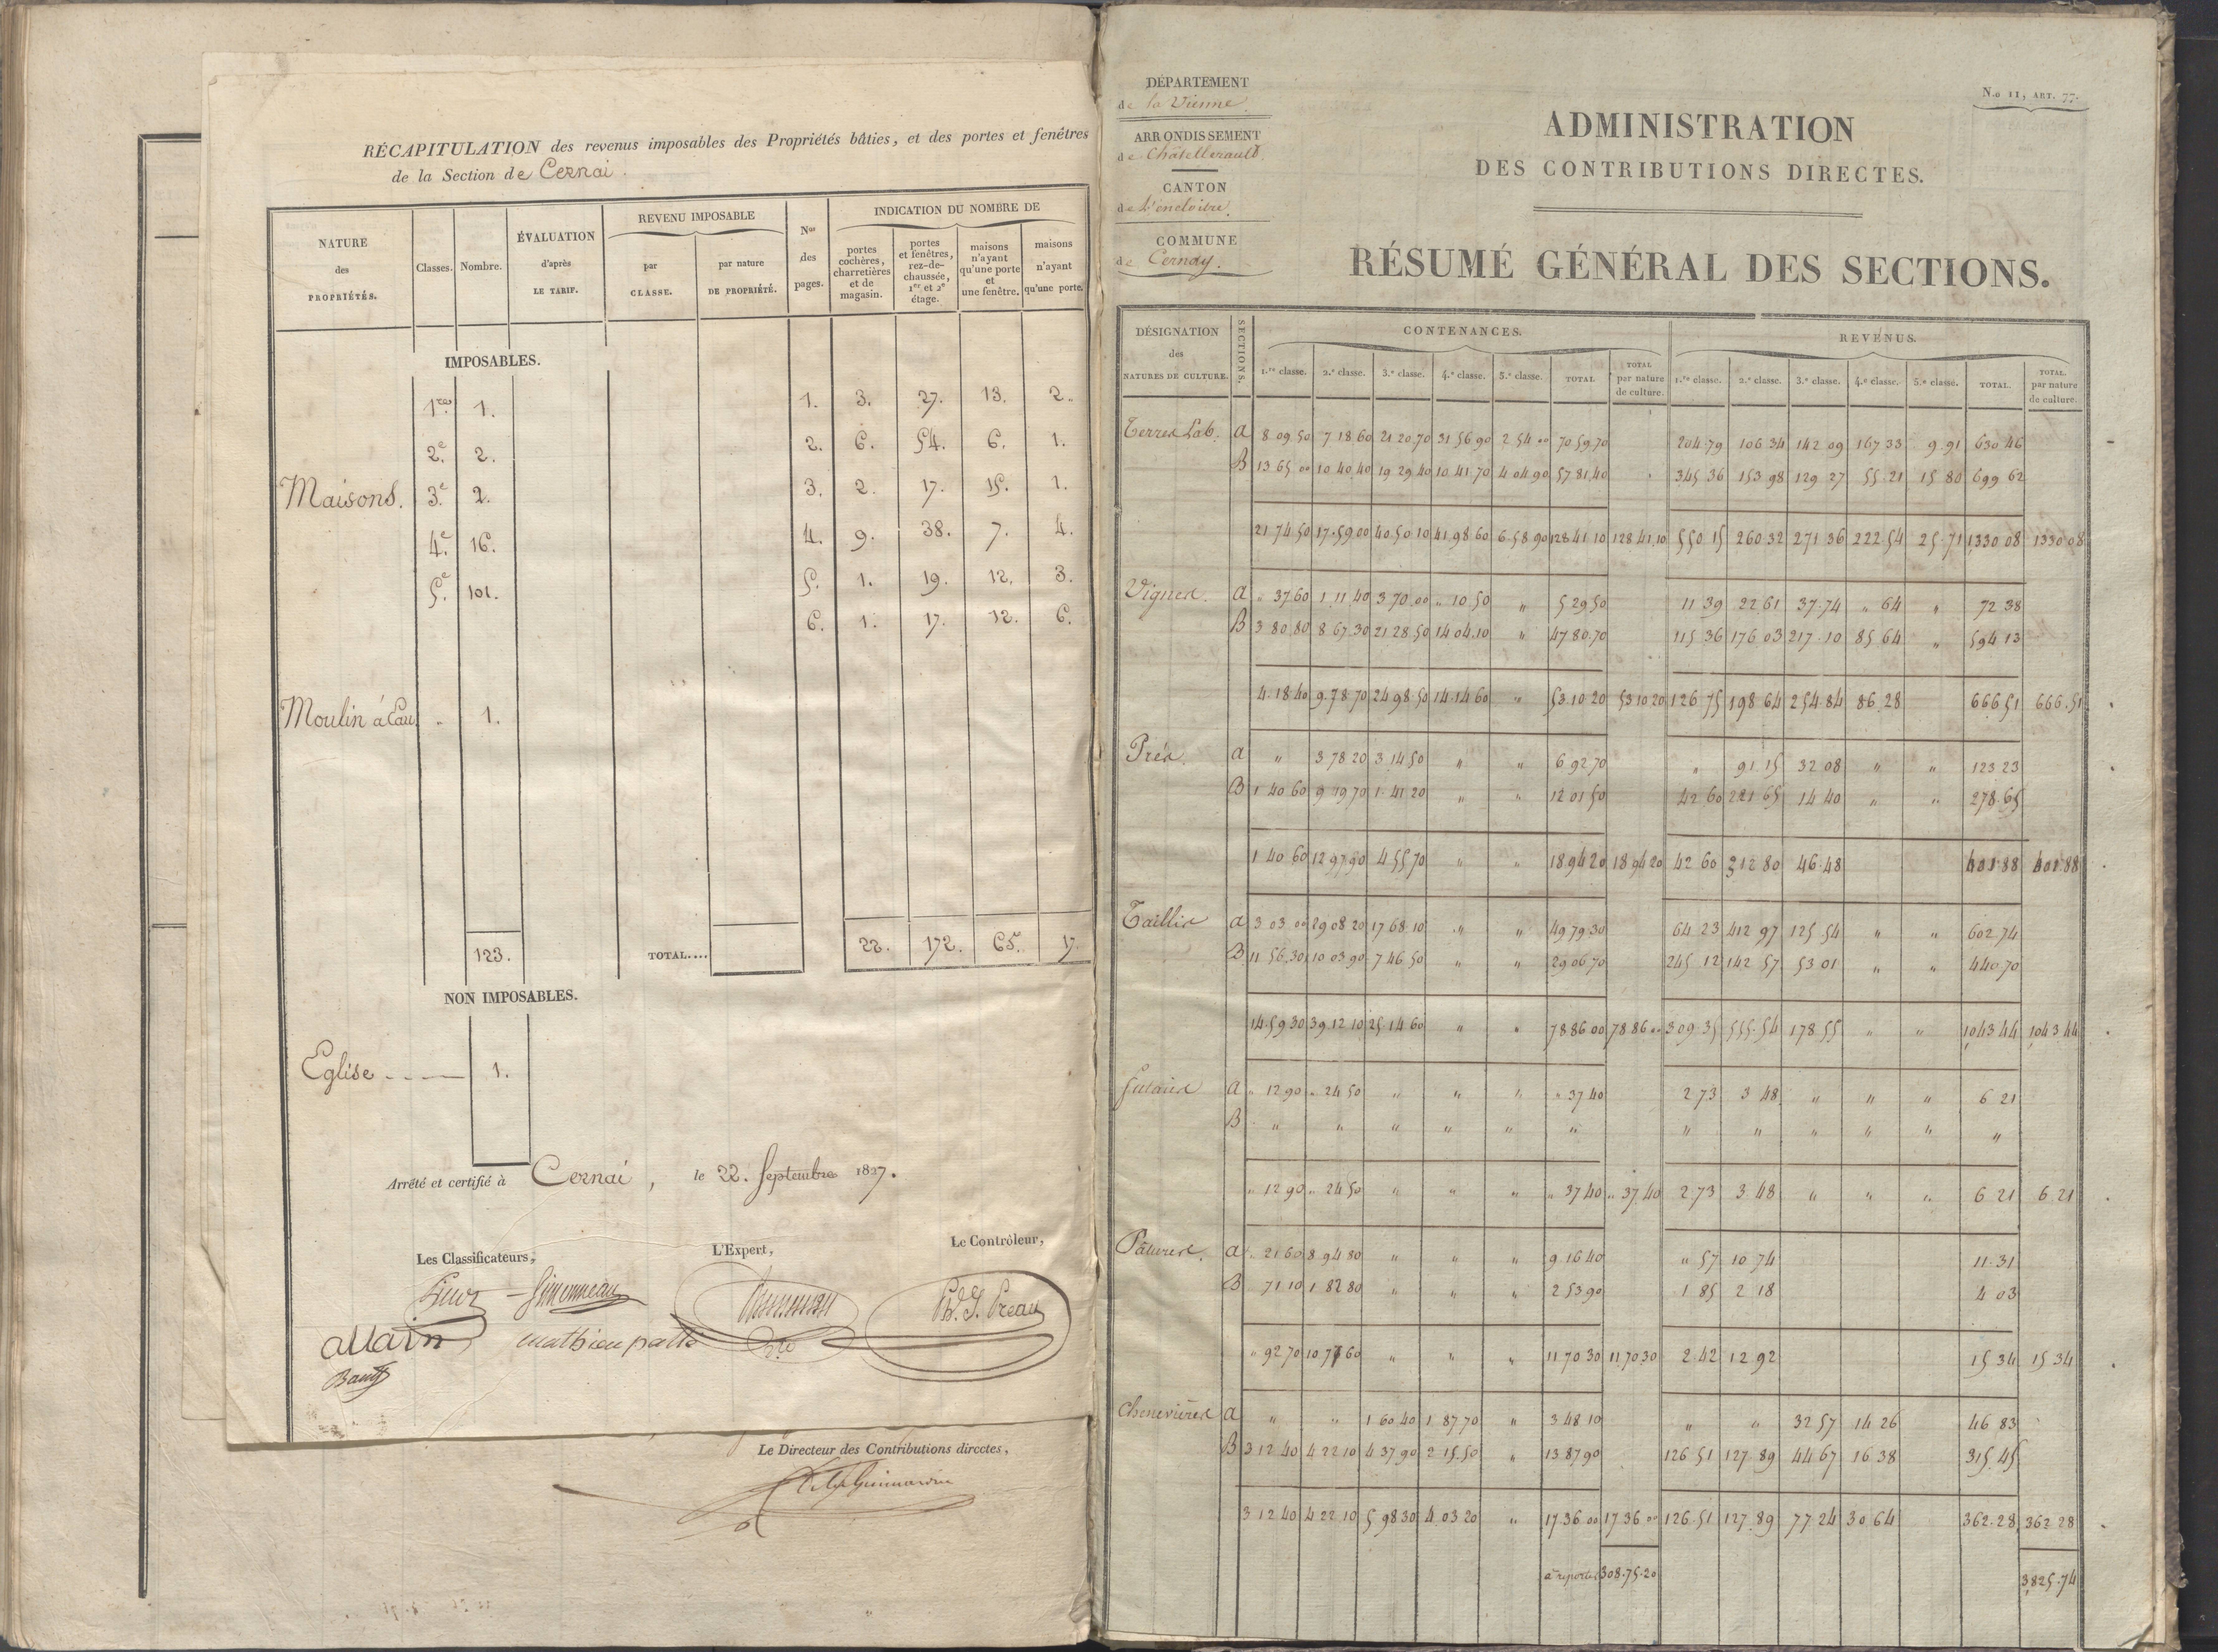 RÉCAPITULATION des revenus imposables des Propriétés bâties, et des portes et fenêtres
de la Section de Cernai.
NATURE des PROPRIÉTÉS. Classes. Nombre. ÉVALUATION d'après LE TARIF. REVENU IMPOSABLE par CLASSE. par nature DE PROPRIÉTÉ. Nos des pages. INDICATION DU NOMBRE DE portes cochères, charretières et de magasin. portes et fenêtres, rez-de-chaussée, 1er et 2e étage. maisons n'ayant qu'une porte et une fenêtre. maisons n'ayant qu'une porte.
IMPOSABLES.
1re 1. 1. 3. 27. 13. 2.
2e 2. 2. 6. 54. 6. 1.
Maisons. 3e 2. 3. 2. 17. 15. 1.
4e 16. 4. 9. 38. 7. 4.
5e 101. 5. 1. 19. 12. 3.
6. 1. 17. 12. 6.
Moulin à Eau. " 1.
123. TOTAL.... 22. 172. 65. 17.
NON IMPOSABLES.
Eglise 1.
Arrêté et certifié à Cernai, le 22. Septembre 1827.
Les Classificateurs, L'Expert, Le Contrôleur,
Simonneau
Allain
Le Directeur des Contributions directes,
DÉPARTEMENT
de la Vienne.
ARRONDISSEMENT
de Châtellerault.
CANTON
de L'encloître.
COMMUNE
de Cernay.
N.o 11, ART. 77.
ADMINISTRATION
DES CONTRIBUTIONS DIRECTES.
RÉSUMÉ GÉNÉRAL DES SECTIONS.
DÉSIGNATION des NATURES DE CULTURE. SECTIONS. CONTENANCES. REVENUS.
1.re classe. 2.e classe. 3.e classe. 4.e classe. 5.e classe. TOTAL TOTAL par nature de culture. 1.re classe. 2.e classe. 3.e classe. 4.e classe. 5.e classe. TOTAL. TOTAL. par nature de culture.
Terres Lab. A 8 09 50 7 18 60 21 20 70 31 56 90 2 54 00 70 59 70 204 79 106 34 142 09 167 33 9 91 630 46
B 13 65 00 10 40 40 19 29 40 10 41 70 4 04 90 57 81 40 345 36 153 98 129 27 55 21 15 80 699 62
21 74 50 17 59 00 40 50 10 41 98 60 6 58 90 128 41 10 128 41 10 550 15 260 32 271 36 222 54 25 71 1330 08 1330 08
Vignes. A " 37 60 1 11 40 3 70 00 " 10 50 " 5 29 50 11 39 22 61 37 74 " 64 " 72 38
B 3 80 80 8 67 30 21 28 50 14 04 10 " 47 80 70 115 36 176 03 217 10 85 64 " 594 13
4 18 40 9 78 70 24 98 50 14 14 60 " 53 10 20 53 10 20 126 75 198 64 254 84 86 28 666 51 666 51
Prés. A " 3 78 20 3 14 50 " " 6 92 70 " 91 15 32 08 " " 123 23
B 1 40 60 9 19 70 1 41 20 " " 12 01 50 42 60 221 65 14 40 " " 278 65
1 40 60 12 97 90 4 55 70 " " 18 94 20 18 94 20 42 60 312 80 46 48 401 88 401 88
Taillis A 3 03 00 29 08 20 17 68 10 " " 49 79 30 64 23 412 97 125 54 " " 602 74
B 11 56 30 10 03 90 7 46 50 " " 29 06 70 245 12 142 57 53 01 " " 440 70
14 59 30 39 12 10 25 14 60 " " 78 86 00 78 86 00 309 35 555 54 178 55 " " 1043 44 1043 44
Futaies A " 12 90 " 24 50 " " " " 37 40 2 73 3 48 " " " 6 21
B " " " " " " " " " " " "
" 12 90 " 24 50 " " " " 37 40 " 37 40 2 73 3 48 " " " 6 21 6 21
Pâtures. A " 21 60 8 94 80 " " " 9 16 40 " 57 10 74 11 31
B 71 10 1 82 80 " " " 2 53 90 1 85 2 18 4 03
" 92 70 10 77 60 " " " 11 70 30 11 70 30 2 42 12 92 15 34 15 34
Chenevières A " " 1 60 40 1 87 70 " 3 48 10 " " 32 57 14 26 46 83
B 3 12 40 4 22 10 4 37 90 2 15 50 " 13 87 90 126 51 127 89 44 67 16 38 315 45
3 12 40 4 22 10 5 98 30 4 03 20 " 17 36 00 17 36 00 126 51 127 89 77 24 30 64 362 28 362 28
à reporter 308 75 20 3,825 74